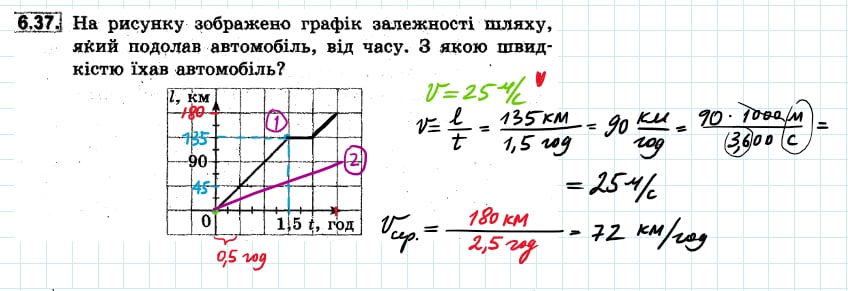 6.37. На рисунку зображено графік залежності шляху,
який подолав автомобіль, від часу. З якою швид-
кістю їхав автомобіль?
l, км
180
135
90
45
0
1,5 t, год
0,5 год
1
2
V = 25 м/с
V = l/t = 135 км/1,5 год = 90 км/год = 90 · 1000 м/3600 с =
= 25 м/с
Vсер. = 180 км/2,5 год = 72 км/год